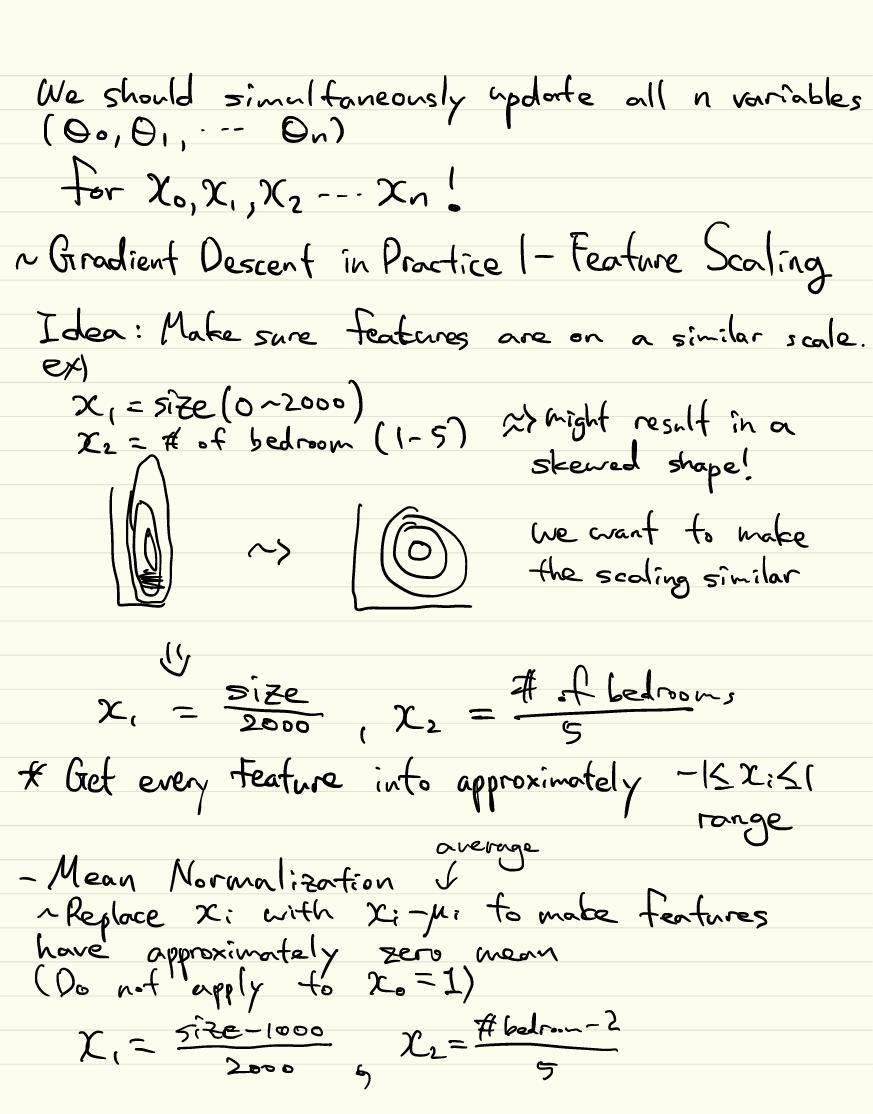 We should simultaneously update all n variables
(θ₀, θ₁, ⋯ θn)
for x₀, x₁, x₂ ⋯ xn!
~ Gradient Descent in Practice 1 - Feature Scaling
Idea: Make sure features are on a similar scale.
ex)
x₁ = size (0 ~ 2000)
x₂ = # of bedroom (1-5) ⇝ might result in a
skewed shape!
~> we want to make
the scaling similar
⇓
x₁ = size / 2000 , x₂ = # of bedrooms / 5
* Get every feature into approximately -1 ≤ xᵢ ≤ 1
range
average
- Mean Normalization ↓
~ Replace xᵢ with xᵢ-μᵢ to make features
have approximately zero mean
(Do not apply to x₀ = 1)
x₁ = size-1000 / 2000 , x₂ = #bedroom-2 / 5